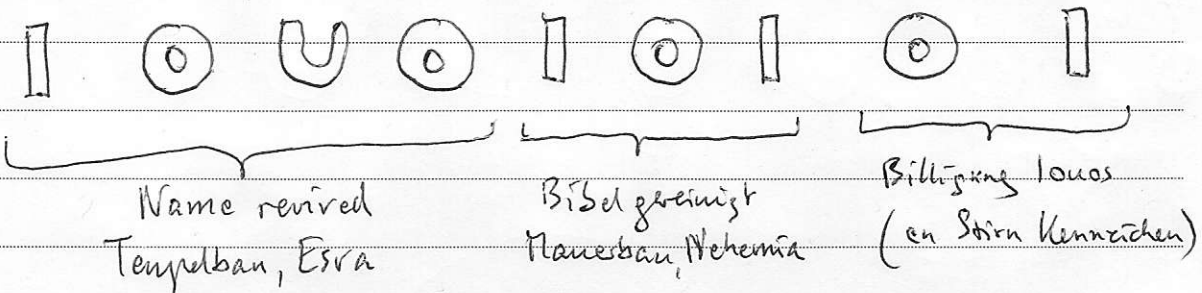 I O U O I O I O I
Name revived
Tempelbau, Esra
Bibel gereinigt
Mauerbau, Nehemia
Billigung Iouos
(an Stirn Kennzeichen)